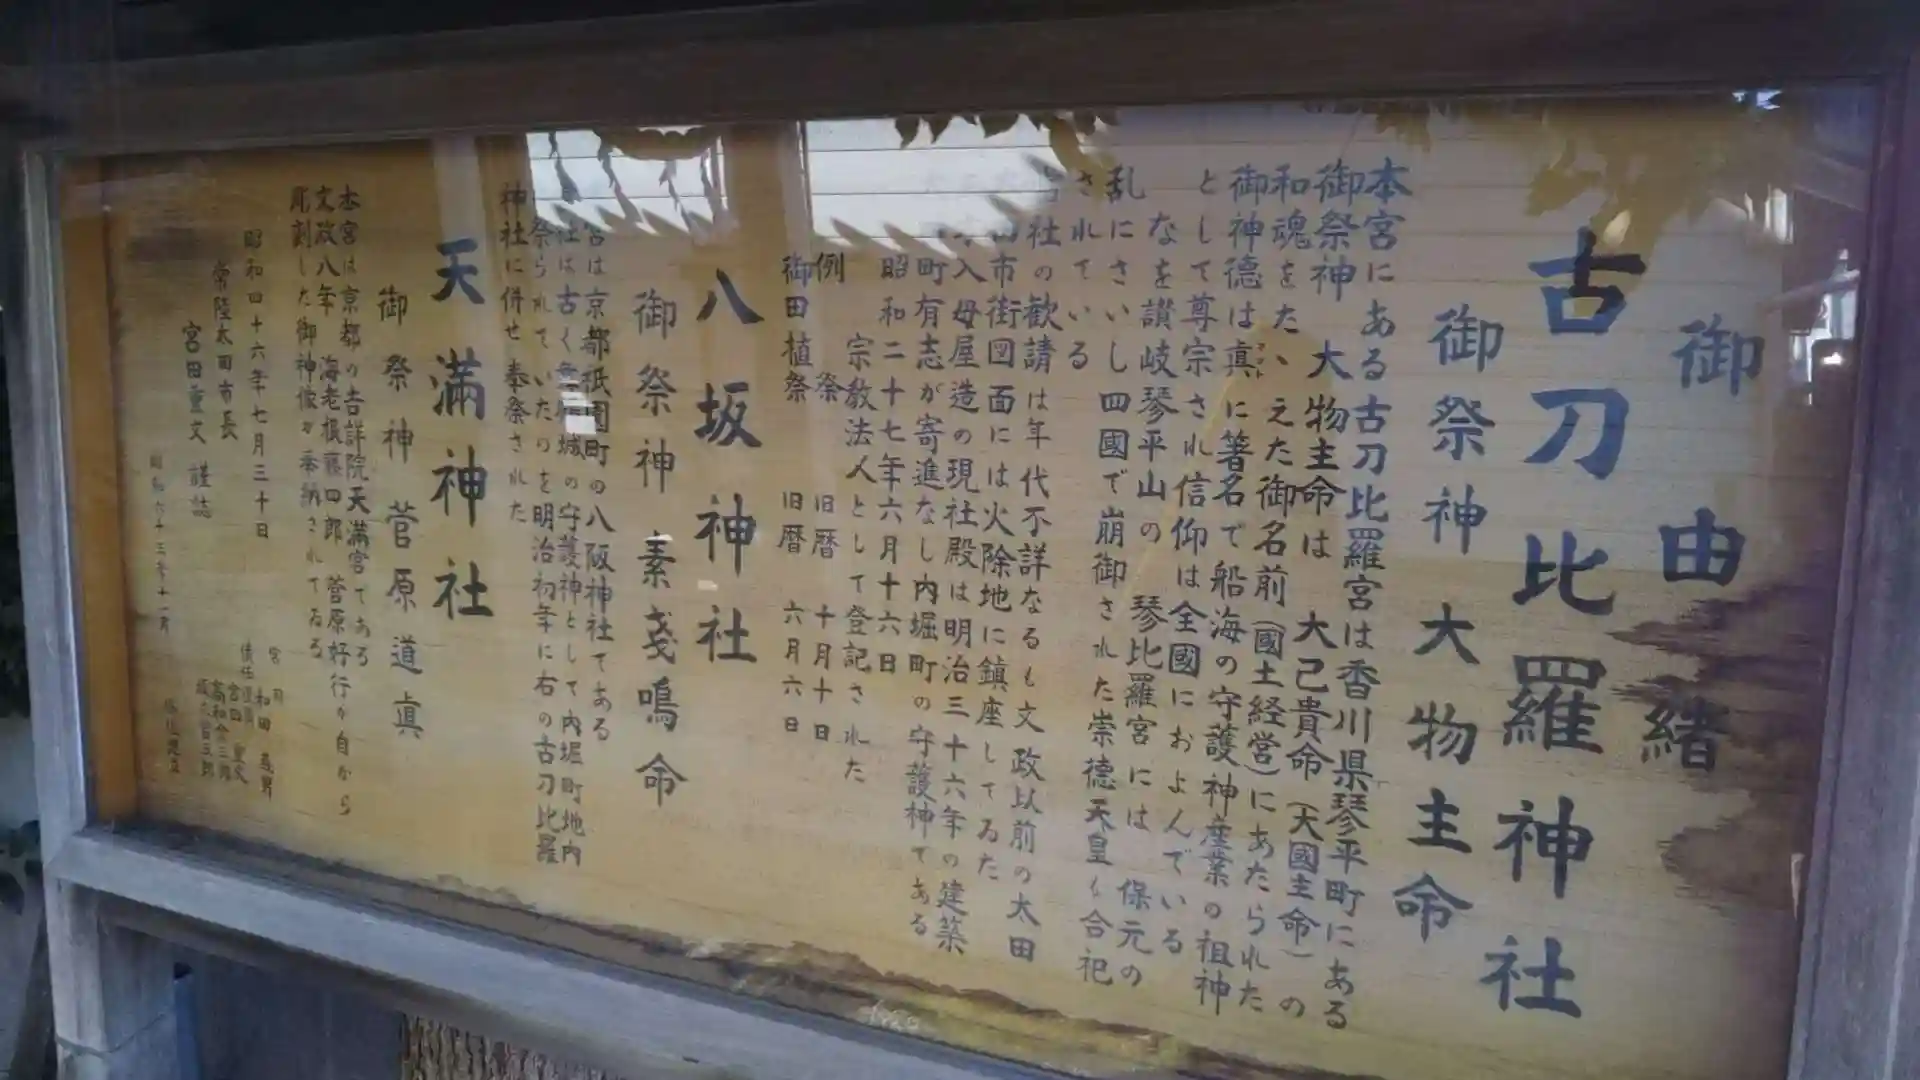 御由緒
古刀比羅神社
御祭神 大物主命
本宮にある古刀比羅宮は香川県琴平町にある
御祭神 大物主命は 大己貴命(大國主命)の
和魂をたゝえた御名前(國土経営)にあたられた
御神徳は真に著名で船海の守護神産業の祖神
として尊宗され信仰は全國におよんでいる
なを讃岐琴平山の 琴比羅宮には 保元の
乱にさいし四國で崩御された崇德天皇も合祀
されている
社の歓請は年代不詳なるも文政以前の太田
市街図面には火除地に鎮座してゐた
入母屋造の現社殿は明治三十六年の建築
町有志が寄進なし内堀町の守護神である
昭和二十七年六月十六日
宗教法人として登記された
例祭 旧暦 十月十日
御田植祭 旧暦 六月六日
八坂神社
御祭神 素戔鳴命
宮は京都祇園町の八阪神社である
社は古く 城の守護神として内堀町地内
祭られていたのを明治初年に右の古刀比羅
神社に併せ奉祭された
天満神社
御祭神 菅原道真
本宮は京都の吉詳院天満宮である
文政八年 海老根藤四郎 菅原好行が自から
彫刻した御神像が奉納されてゐる
昭和四十六年七月三十日
常陸太田市長
宮田重文 謹誌
昭和六十三年十一月
和田
宮田